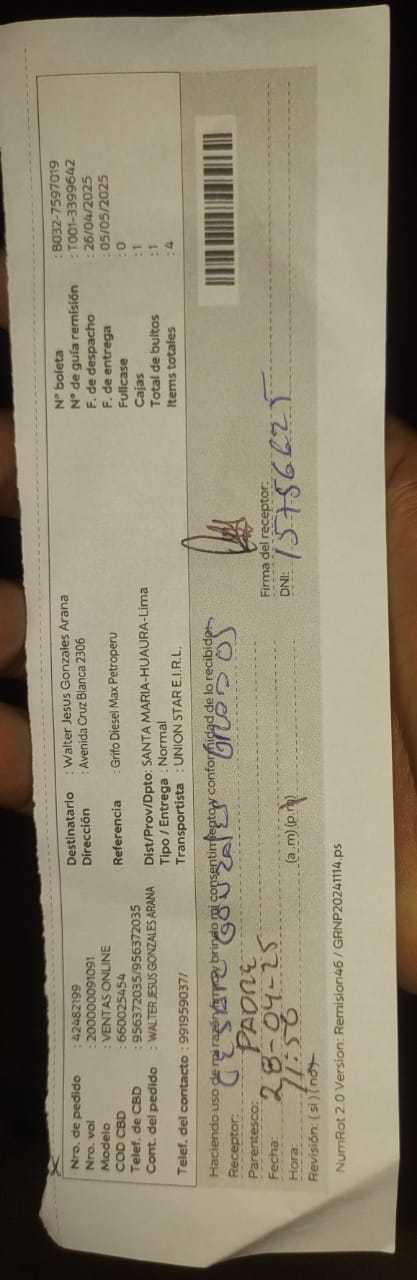 Nro. de pedido : 42482199
Nro. vol : 200000091091
Modelo : VENTAS ONLINE
COD CBD : 660025454
Telef. de CBD : 956372035/956372035
Cont. del pedido : WALTER JESUS GONZALES ARANA
Telef. del contacto : 991959037/
Destinatario : Walter Jesus Gonzales Arana
Dirección : Avenida Cruz Blanca 2306
Referencia : Grifo Diesel Max Petroperu
Dist/Prov/Dpto : SANTA MARIA-HUAURA-Lima
Tipo / Entrega : Normal
Transportista : UNION STAR E.I.R.L.
N° boleta : B032-7597019
N° de guía remisión : T001-3399642
F. de despacho : 26/04/2025
F. de entrega : 05/05/2025
Fullcase : 0
Cajas : 1
Total de bultos : 1
Items totales : 4
Haciendo uso de mi razón brindo mi consentimiento y conformidad de lo recibido.
Receptor: CESAR GONZALES
Parentesco: PADRE
Fecha: 28-04-25
Hora: 11:50 (a_m) (p_m)
Revisión: ( si ) ( no )
Firma del receptor:
DNI: 15756625
NumRot 2.0 Version: Remision46 / GRNP20241114.ps